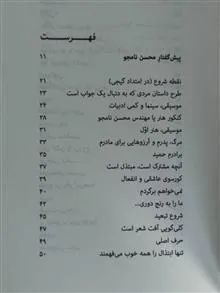 فهرست
پیش‌گفتار محسن نامجو ۱۱
نقطه شروع (در امتداد گیجی) ۲۱
طرح داستان مردی که به دنبال یک جواب است ۲۳
موسیقی، سینما و کمی ادبیات ۲۴
کنکور هنر یا مهندس محسن نامجو ۲۸
موسیقی، هنر اوّل ۳۱
مرگ، پدرم و آرزوهایی برای مادرم ۳۳
برادرم حمید ۳۵
آنچه مشترک است، مبتذل است ۳۷
کورسوی عاشقی و انفعال ۳۹
نمی‌خواهم برگردم ۴۰
ما را به رنج دوری... ۴۲
شروع تبعید ۴۵
کلی‌گویی آفت شعر است ۴۷
حرف اصلی ۴۹
تنها ابتذال را همه خوب می‌فهمند ۵۰